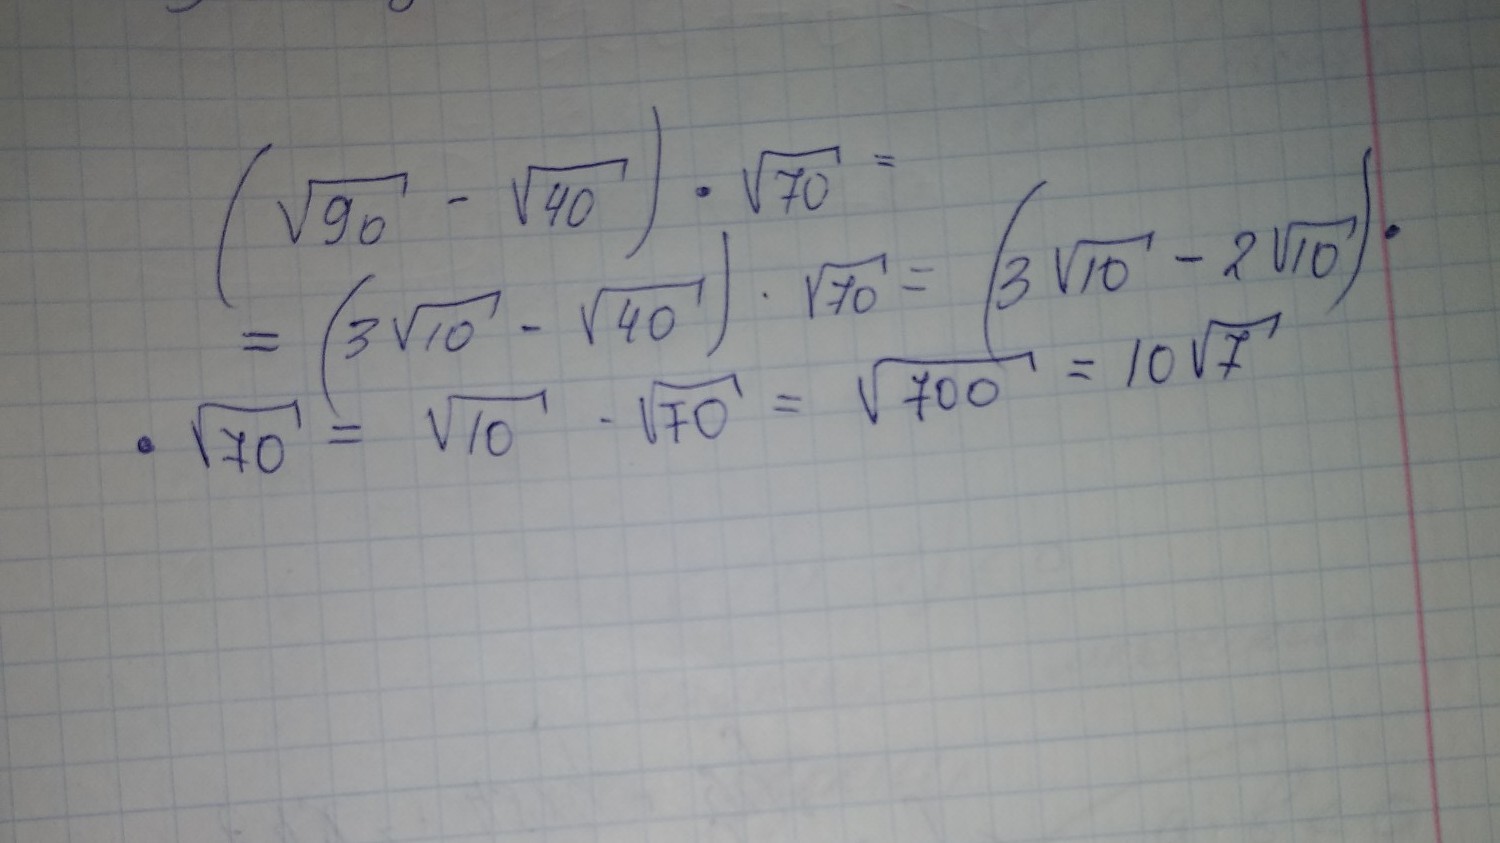 (√90 - √40) • √70 =
= (3√10 - √40) · √70 = (3√10 - 2√10) •
• √70 = √10 · √70 = √700 = 10√7